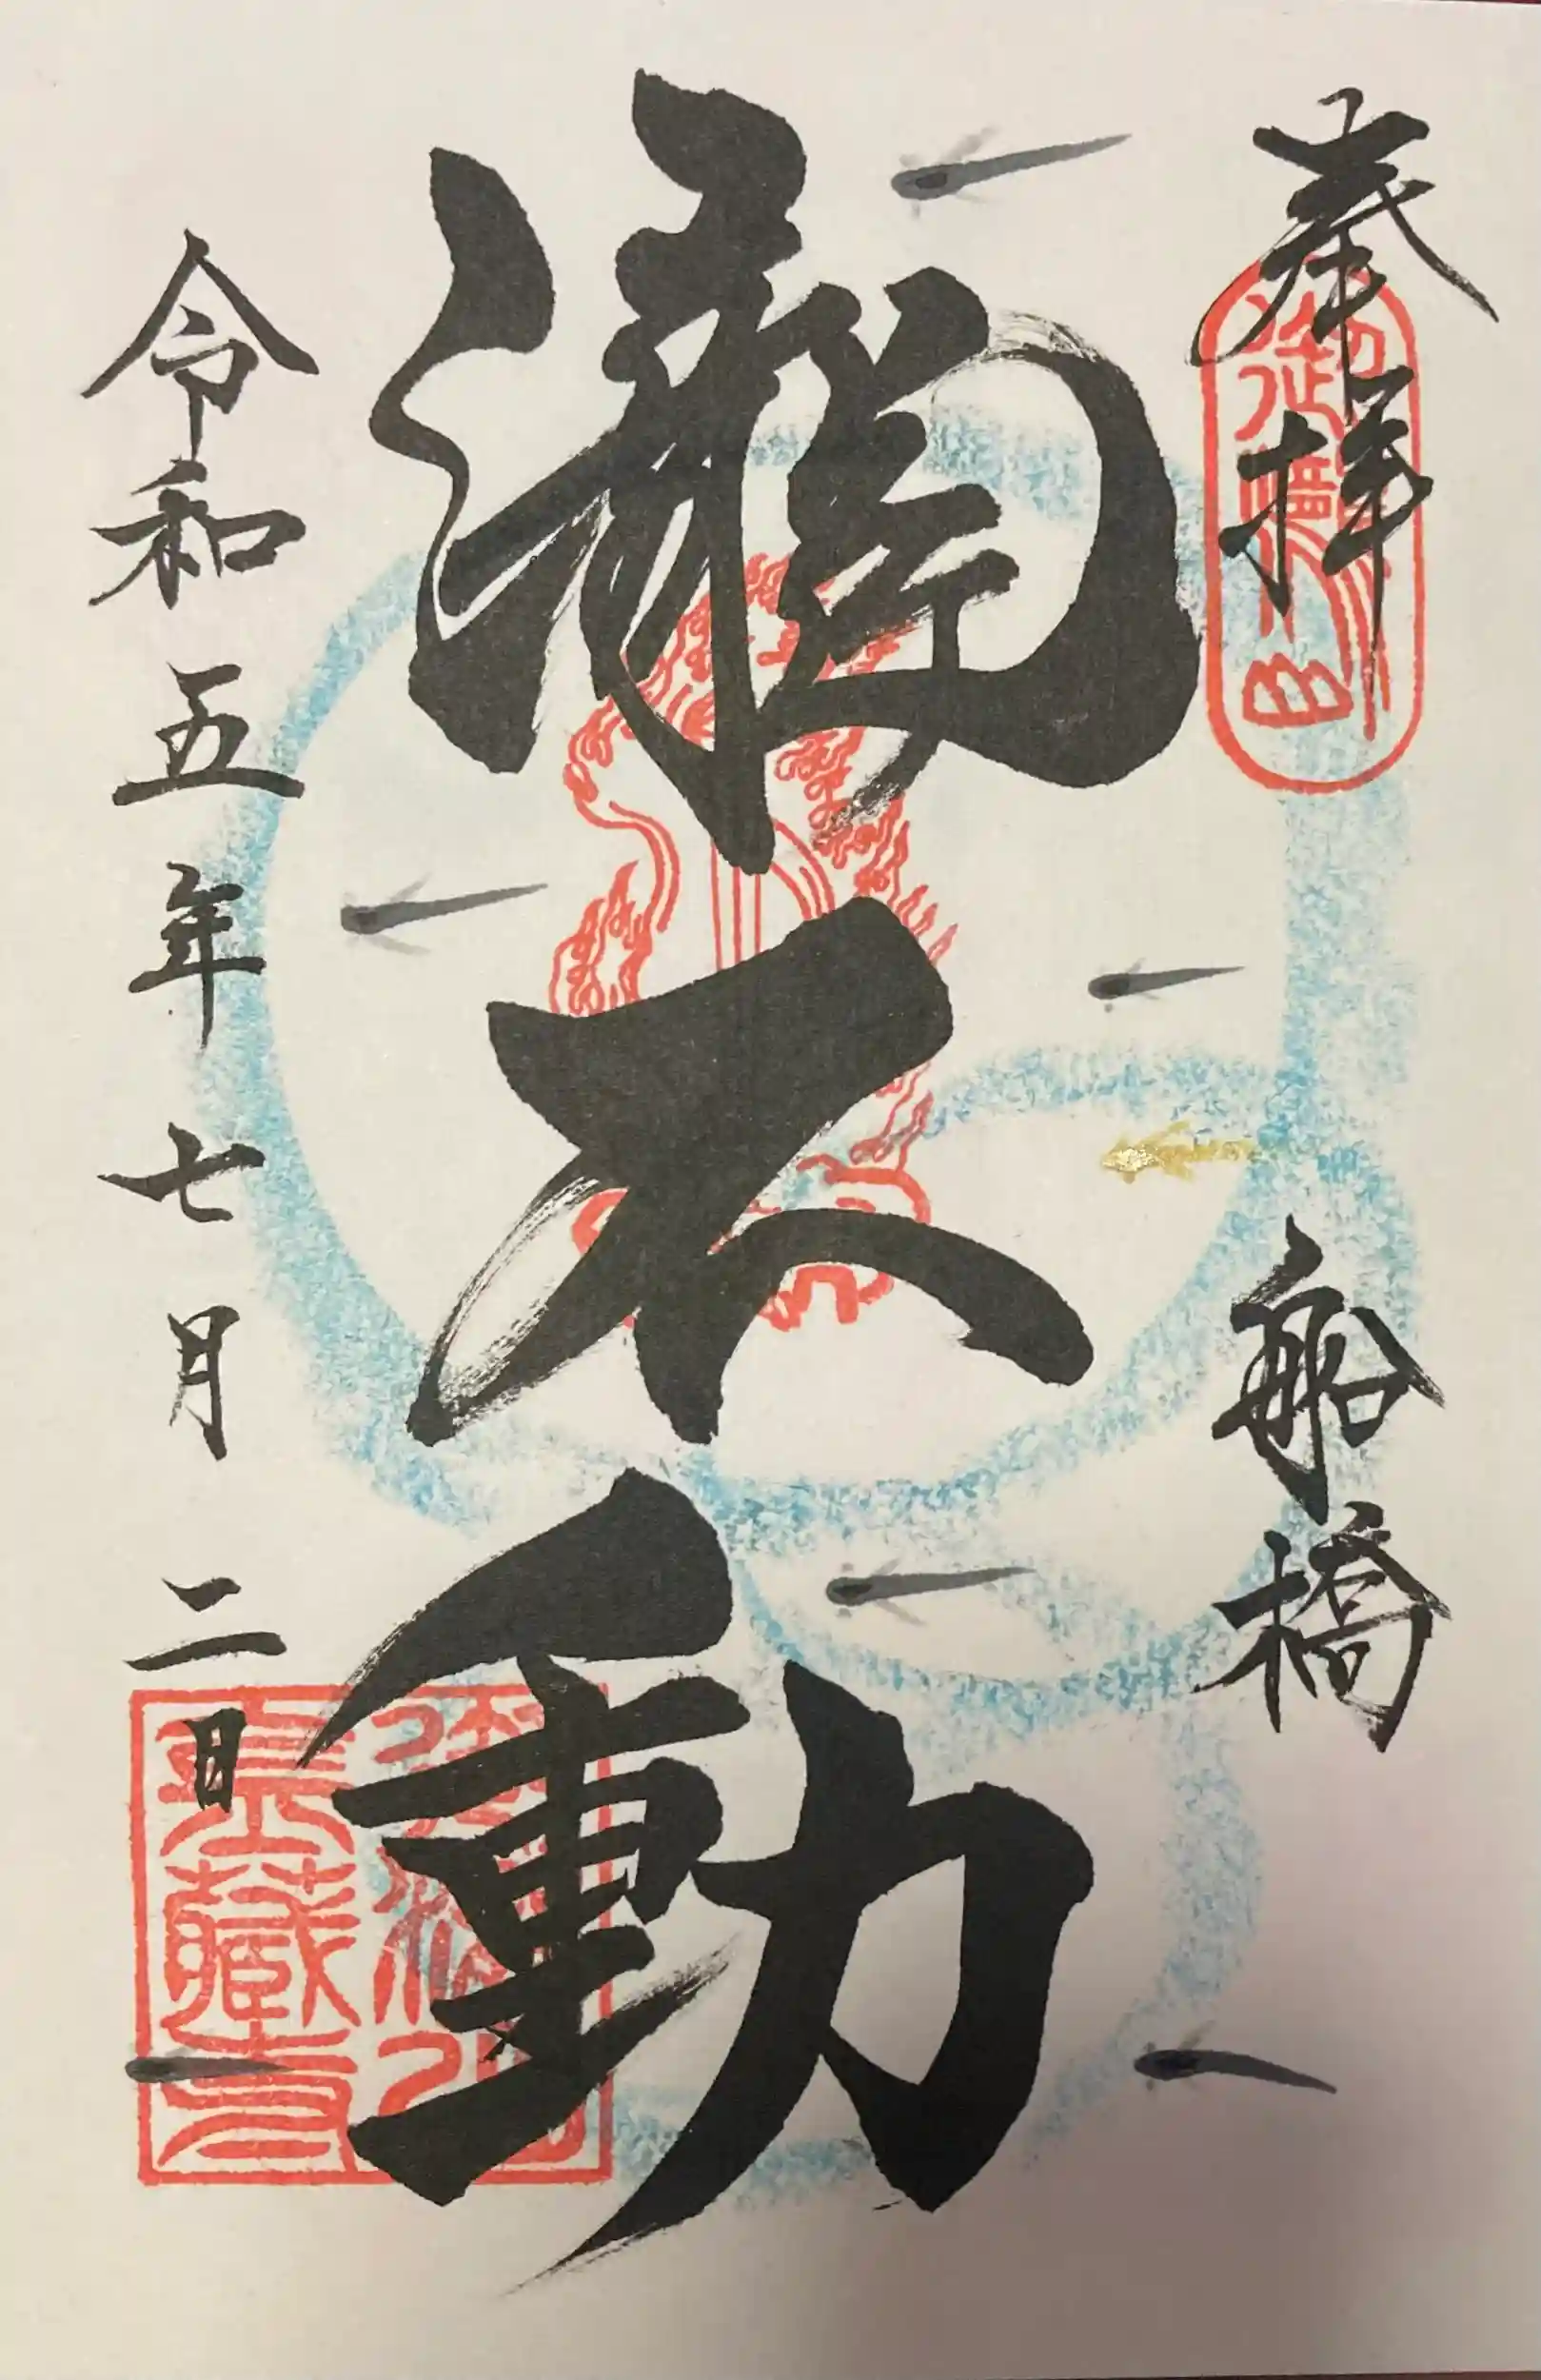 奉拝
船橋
瀧不動
令和五年七月二日
長藏寺